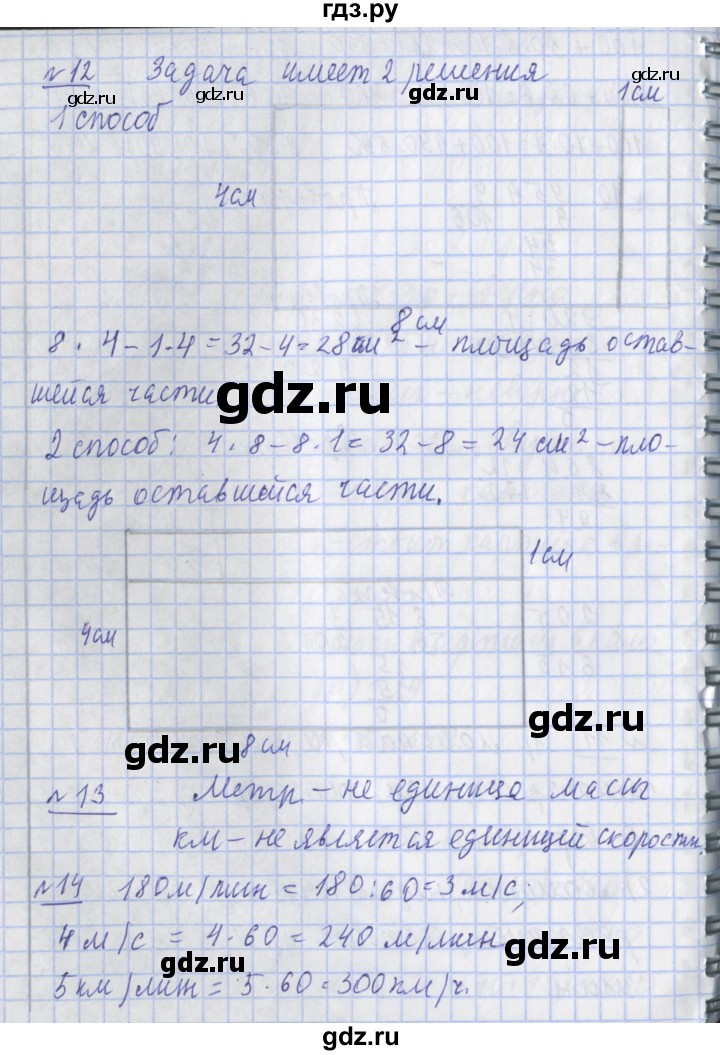 гдз.ру
№12 Задача имеет 2 решения
gdz.ru gdz.ru gdz.ru gdz.ru
1 способ
1см
4см
8см
8 · 4 - 1 · 4 = 32 - 4 = 28 см² - площадь остав-
шейся части
gdz.ru
2 способ: 4 · 8 - 8 · 1 = 32 - 8 = 24 см² - пло-
щадь оставшейся части.
1см
4см
8см
gdz.ru gdz.ru
№13 Метр - не единица массы
км - не является единицей скорости.
№14 180м/мин = 180:60=3м/с;
4м/с = 4·60 = 240 м/мин
gdz.ru gdz.ru
5км/мин = 5·60=300км/ч.
gdz.ru